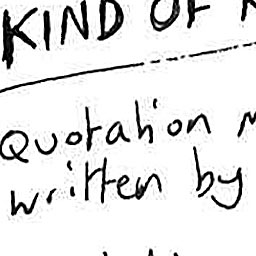 KIND OF
Quotation
written by